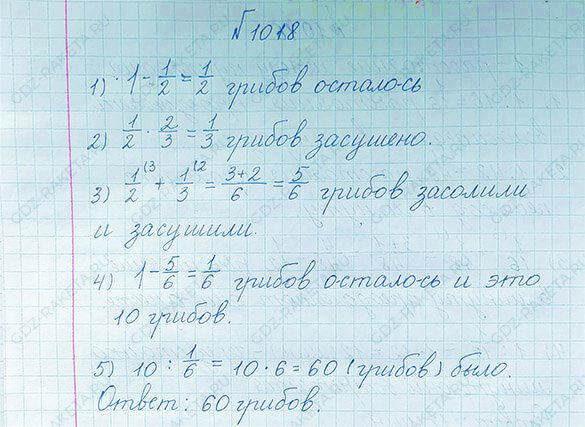 №1018
1) 1 - 1/2 = 1/2 грибов осталось
2) 1/2 · 2/3 = 1/3 грибов засушено.
3) 1/2^(3 + 1/3^(2 = 3+2/6 = 5/6 грибов засолили
и засушили.
4) 1 - 5/6 = 1/6 грибов осталось и это
10 грибов.
5) 10 : 1/6 = 10 · 6 = 60 (грибов) было.
Ответ: 60 грибов.
GDZ-RAKETA.RU